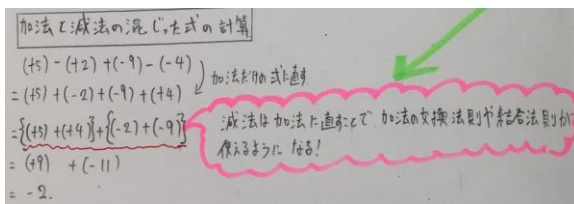 加法と減法の混じった式の計算
(+5)-(+2)+(-9)-(-4)
加法だけの式に直す
=(+5)+(-2)+(-9)+(+4)
={(+5)+(+4)}+{(-2)+(-9)}
減法は加法に直すことで、加法の交換法則や結合法則が
使えるようになる!
=(+9)+(-11)
=-2.